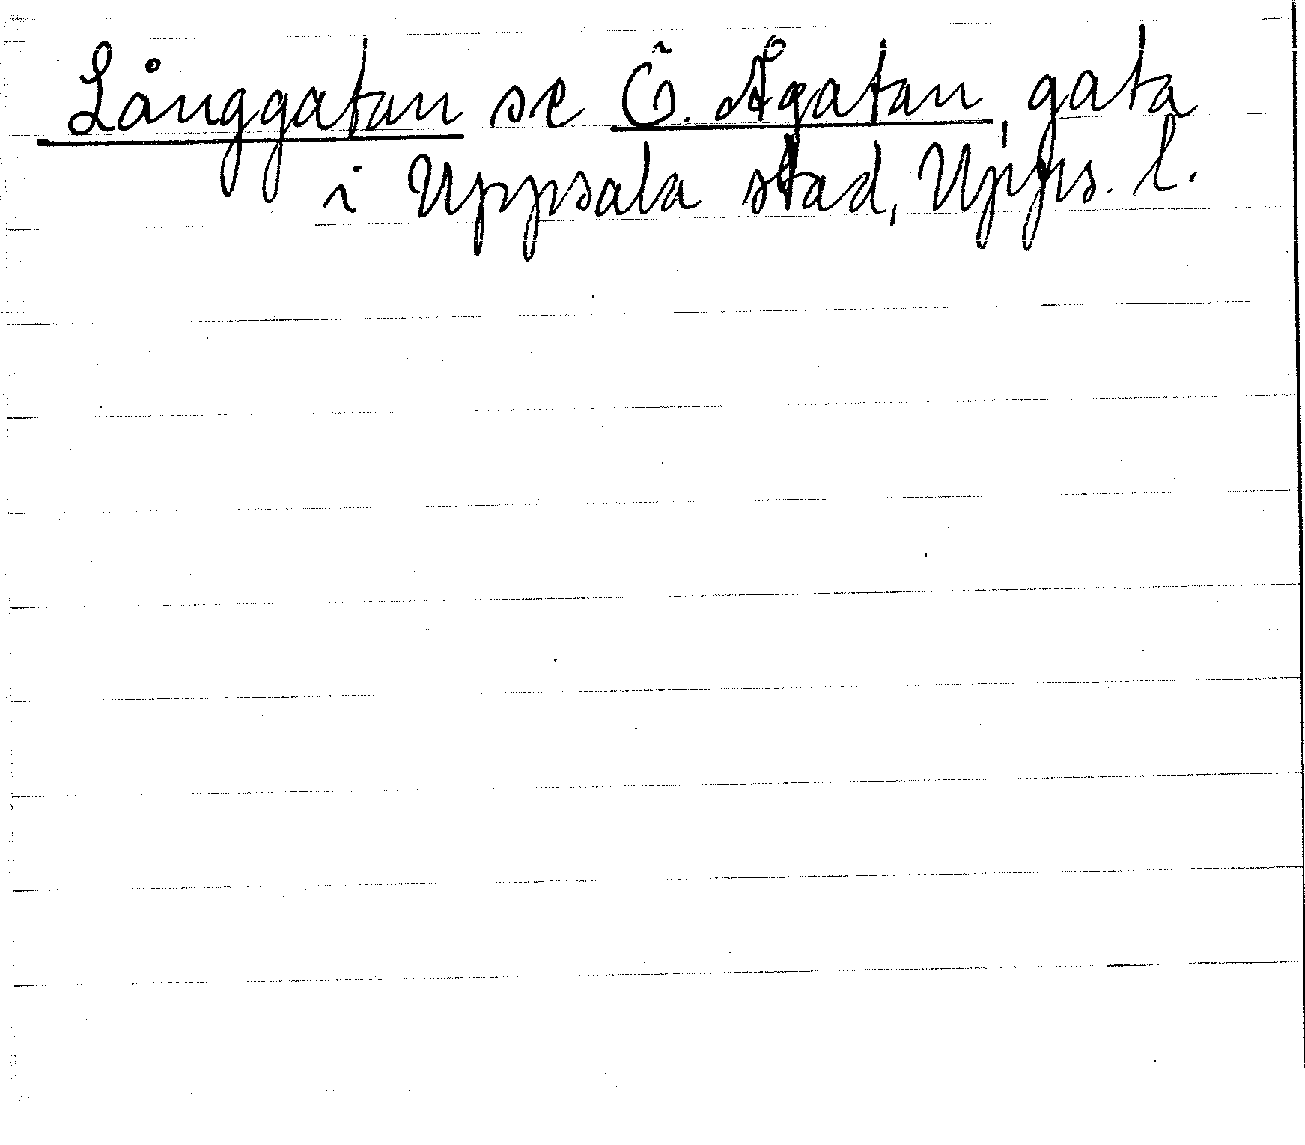 Långgatan se Ö. Ågatan, gata
i Uppsala stad, Upps. l.